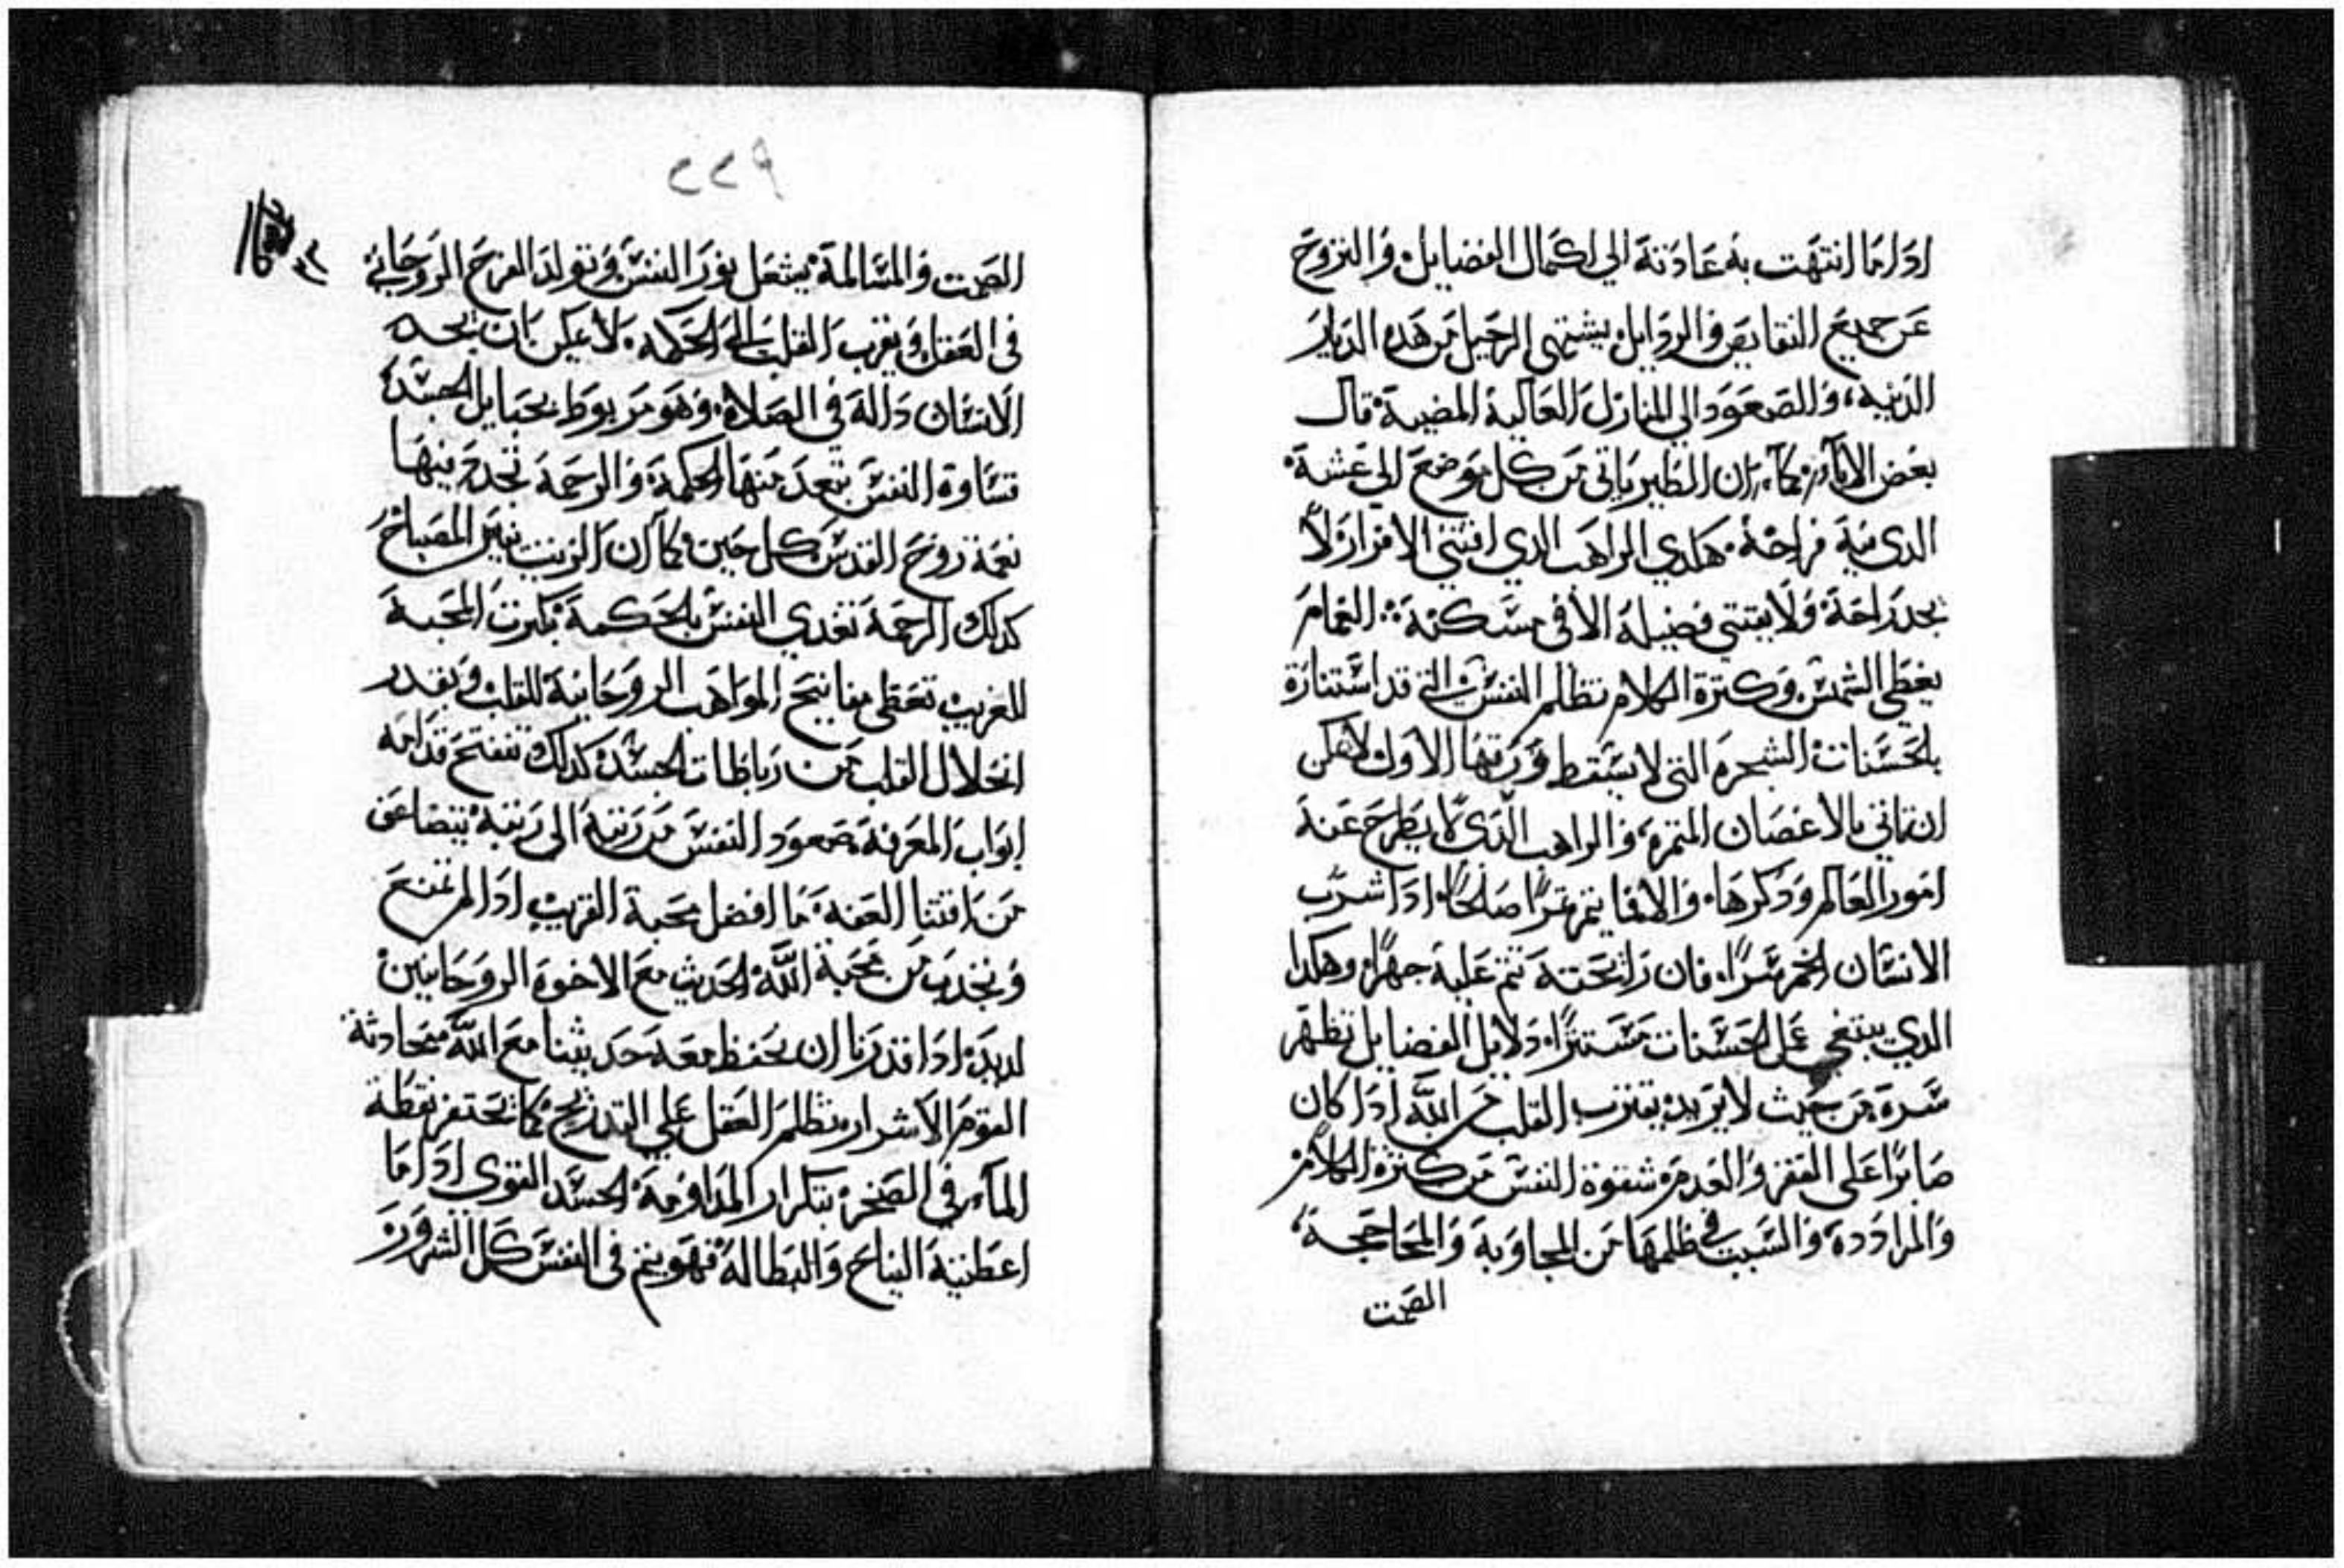 ادا ما انتهت به عادته الي اكمال الفضايل، والنزوح
عن جميع النقايص والردايل، يشتهي الرحيل من هده الديار
الدنيه، وللصعود الي المنازل العالية المضيية، قال
بعض الابآ، كمآ ان الطير ياتي من كل موضع الي عشة
الدي فية فراخة، هكدي الراهب الدي اقتني الافراز لا
يجد راحة ولا يقتني فضيلة الا في مسكنة ؞ الغمام
يغطي الشمس، وكترة الكلام تظلم النفس التي قد استنارة
بالحسنات، الشجره التي لا يسقط ورقها الاول لا يمكن
ان تاتي بالاغصان المتمره، والراهب الدي لا يطرح عنه
امور العالم ودكرها، والا فما يتمر تمرًا صالحًا، ادا شرب
الانسان الخمر سرًا، فان رائحته تنم علية جهرًا، وهكدا
الدي يبتغي عمل الحسنات مستترًا، دلايل الفضايل تظهر
سره من حيث لا يريد، يقترب القلب من الله ادا كان
صابرًا علي الفقر والعدم، شقوة النفس من كترة الكلام
والمراددة، والسبب في ظلمها من المجاوبة والمحاججة،
الصمت
٢٢٩
الصمت والمسالمة يشعل نور النفس، وتولد الفرح الروحاني
في العقل، ويقرب القلب الي الحكمه، لا يمكن بان تجد
الانسان دالة في الصلاة، وهو مربوط بحبايل الجسد
قساوة النفس تبعد منها الحكمة، والرحمة تجدد فيها
نعمة روح القدس كل حين، كمآ ان الزيت ينير المصباح
كدلك الرحمة تغدي النفس بالحكمة، بكترت المحبة
للغريب، تعطي مفاتيح المواهب الروحانية للقلب، وبقدر
انحلال القلب من رباطات الجسد، كدلك تنفتح قدامه
ابواب المعرفة، صعود النفس من رتبة الي رتبة يتضاعف
من اقتنا العفه، ما افضل محبة القريب، ادا لم تمنع
وتجدب من محبة الله، الحديث مع الاخوة الروحانيين
لديد، ادا قدرنا ان نحفظ معه حديثنا مع الله، محادثة
القوم الاشرار تظلم العقل علي التدريج، كما تحتفر نقطة
المآء في الصخر بتكرار المداومة، الجسد القوي ادا ما
اعطيته النياح والبطالة، فهو ينم في النفس كل الشرور